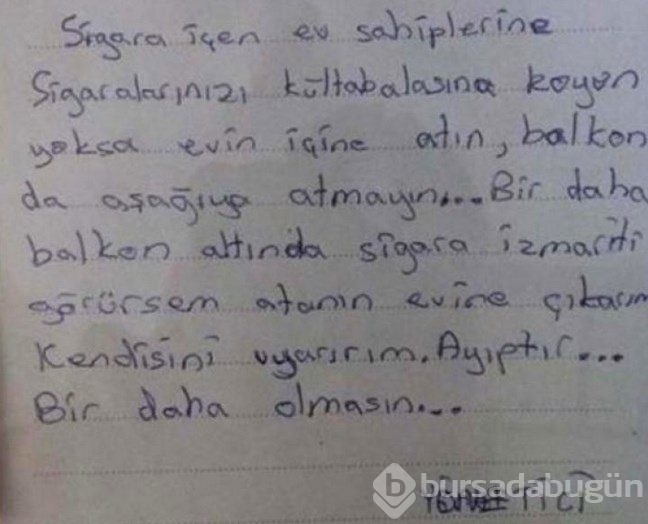 Sigara içen ev sahiplerine
Sigaralarınızı kültabalasına koyun
yoksa evin içine atın, balkon
da aşağıya atmayın... Bir daha
balkon altında sigara izmariti
görürsem atanın evine çıkarım
Kendisini uyarırım. Ayıptır...
Bir daha olmasın...
bursadabugün